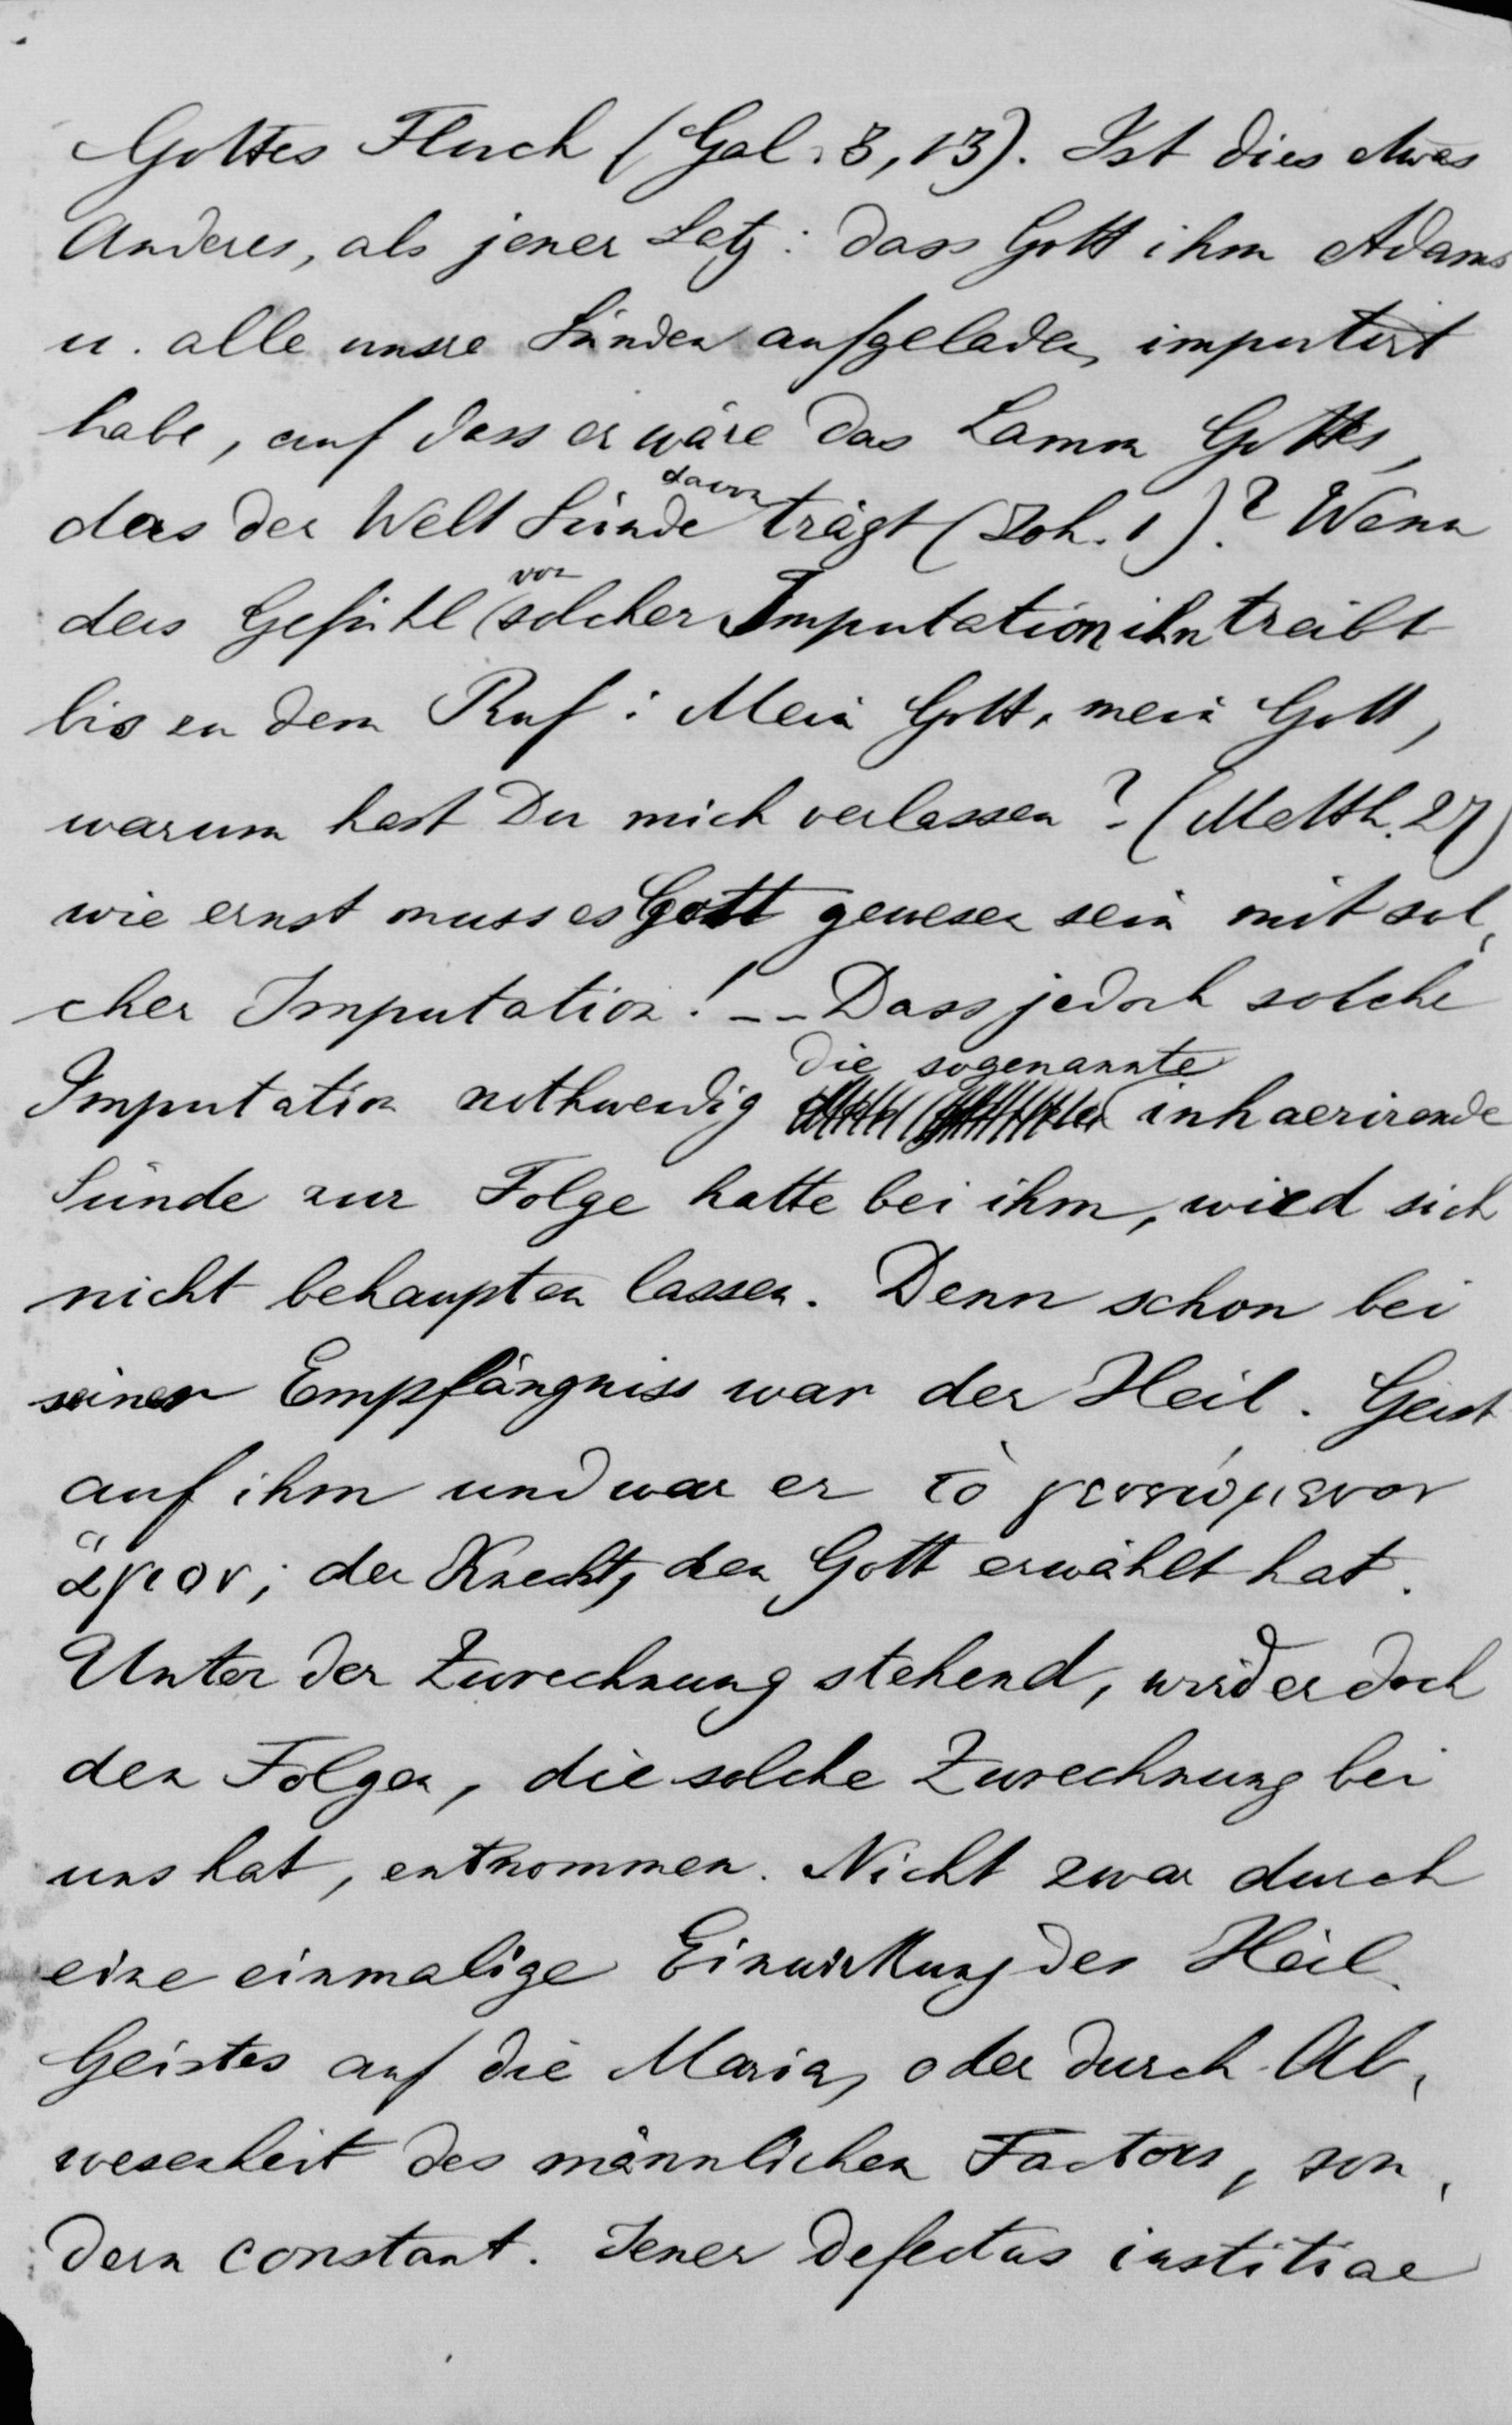 Gottes Fluch (Gal. 3, 13). Ist dies etwas
Anderes, als jener Satz: dass Gott ihm Adams
u. alle unsre Sünden aufgeladen, imputirt
habe, auf dass er wäre das Lamm Gottes,
das der Welt Sünde dann trägt (Joh. 1)? Wenn
das Gefühl von solcher Imputation ihn treibt
bis zu dem Ruf: Mein Gott, mein Gott,
warum hast Du mich verlassen? (Matth. 27)
wie ernst muss es Gott gewesen sein mit sol,
cher Imputation! -- Dass jedoch solche
Imputation nothwendig die sogenannte inhaerirende
Sünde zur Folge hatte bei ihm, wird sich
nicht behaupten lassen. Denn schon bei
seiner Empfängniss war der Heil. Geist
auf ihm und war er τὸ γεννώμενον
ἅγιον; der Knecht, den Gott erwählt hat.
Unter der Zurechnung stehend, wird er doch
den Folgen, die solche Zurechnung bei
uns hat, entnommen. Nicht zwar durch
eine einmalige Einwirkung des Heil.
Geistes auf die Maria, oder durch Ab,
wesenheit des männlichen Factors, son,
dern constant. Jener defectus iustitiae